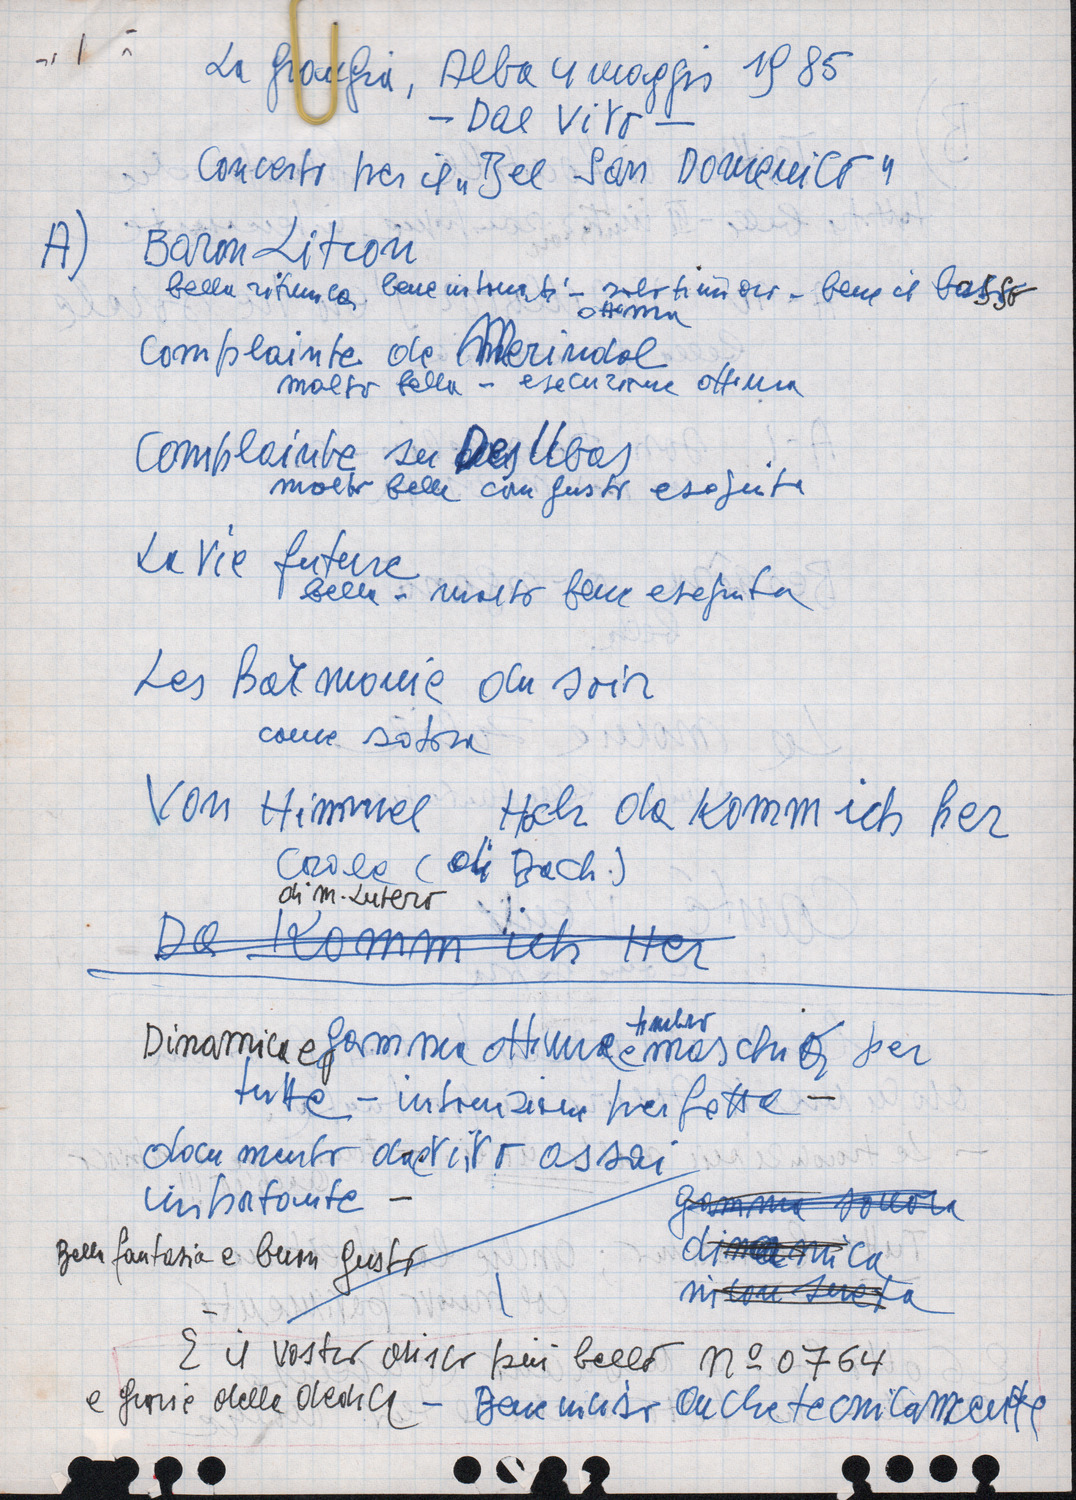 La Grangia, Alba 4 maggio 1985
— Dal Vivo —
Concerto per il „Bel San Domenico"
A) Baron Litron
bella ritmica bene intonati - - bene il basso
ottima
Complainte de Merindol
molto bella - esecuzione ottima
Complainte su Des Ubas
molto bella con gusto eseguita
La Vie future
bella - molto bene eseguita
Les Bat monie du soir
come sopra
Von Himmel Hoch da Komm ich her
Corale (di Bach.)
di M. Lutero
Da Komm ich Her
timbro
Dinamica e gamma ottima e maschio per
tutte - intonazione perfetta -
documento dal vivo assai
importante -
gamma sonora
Bella fantasia e buon gusto
dinamica
E il vostro disco più bello nº 0764
e grazie della dedica - Bene inciso anche tecnicamente